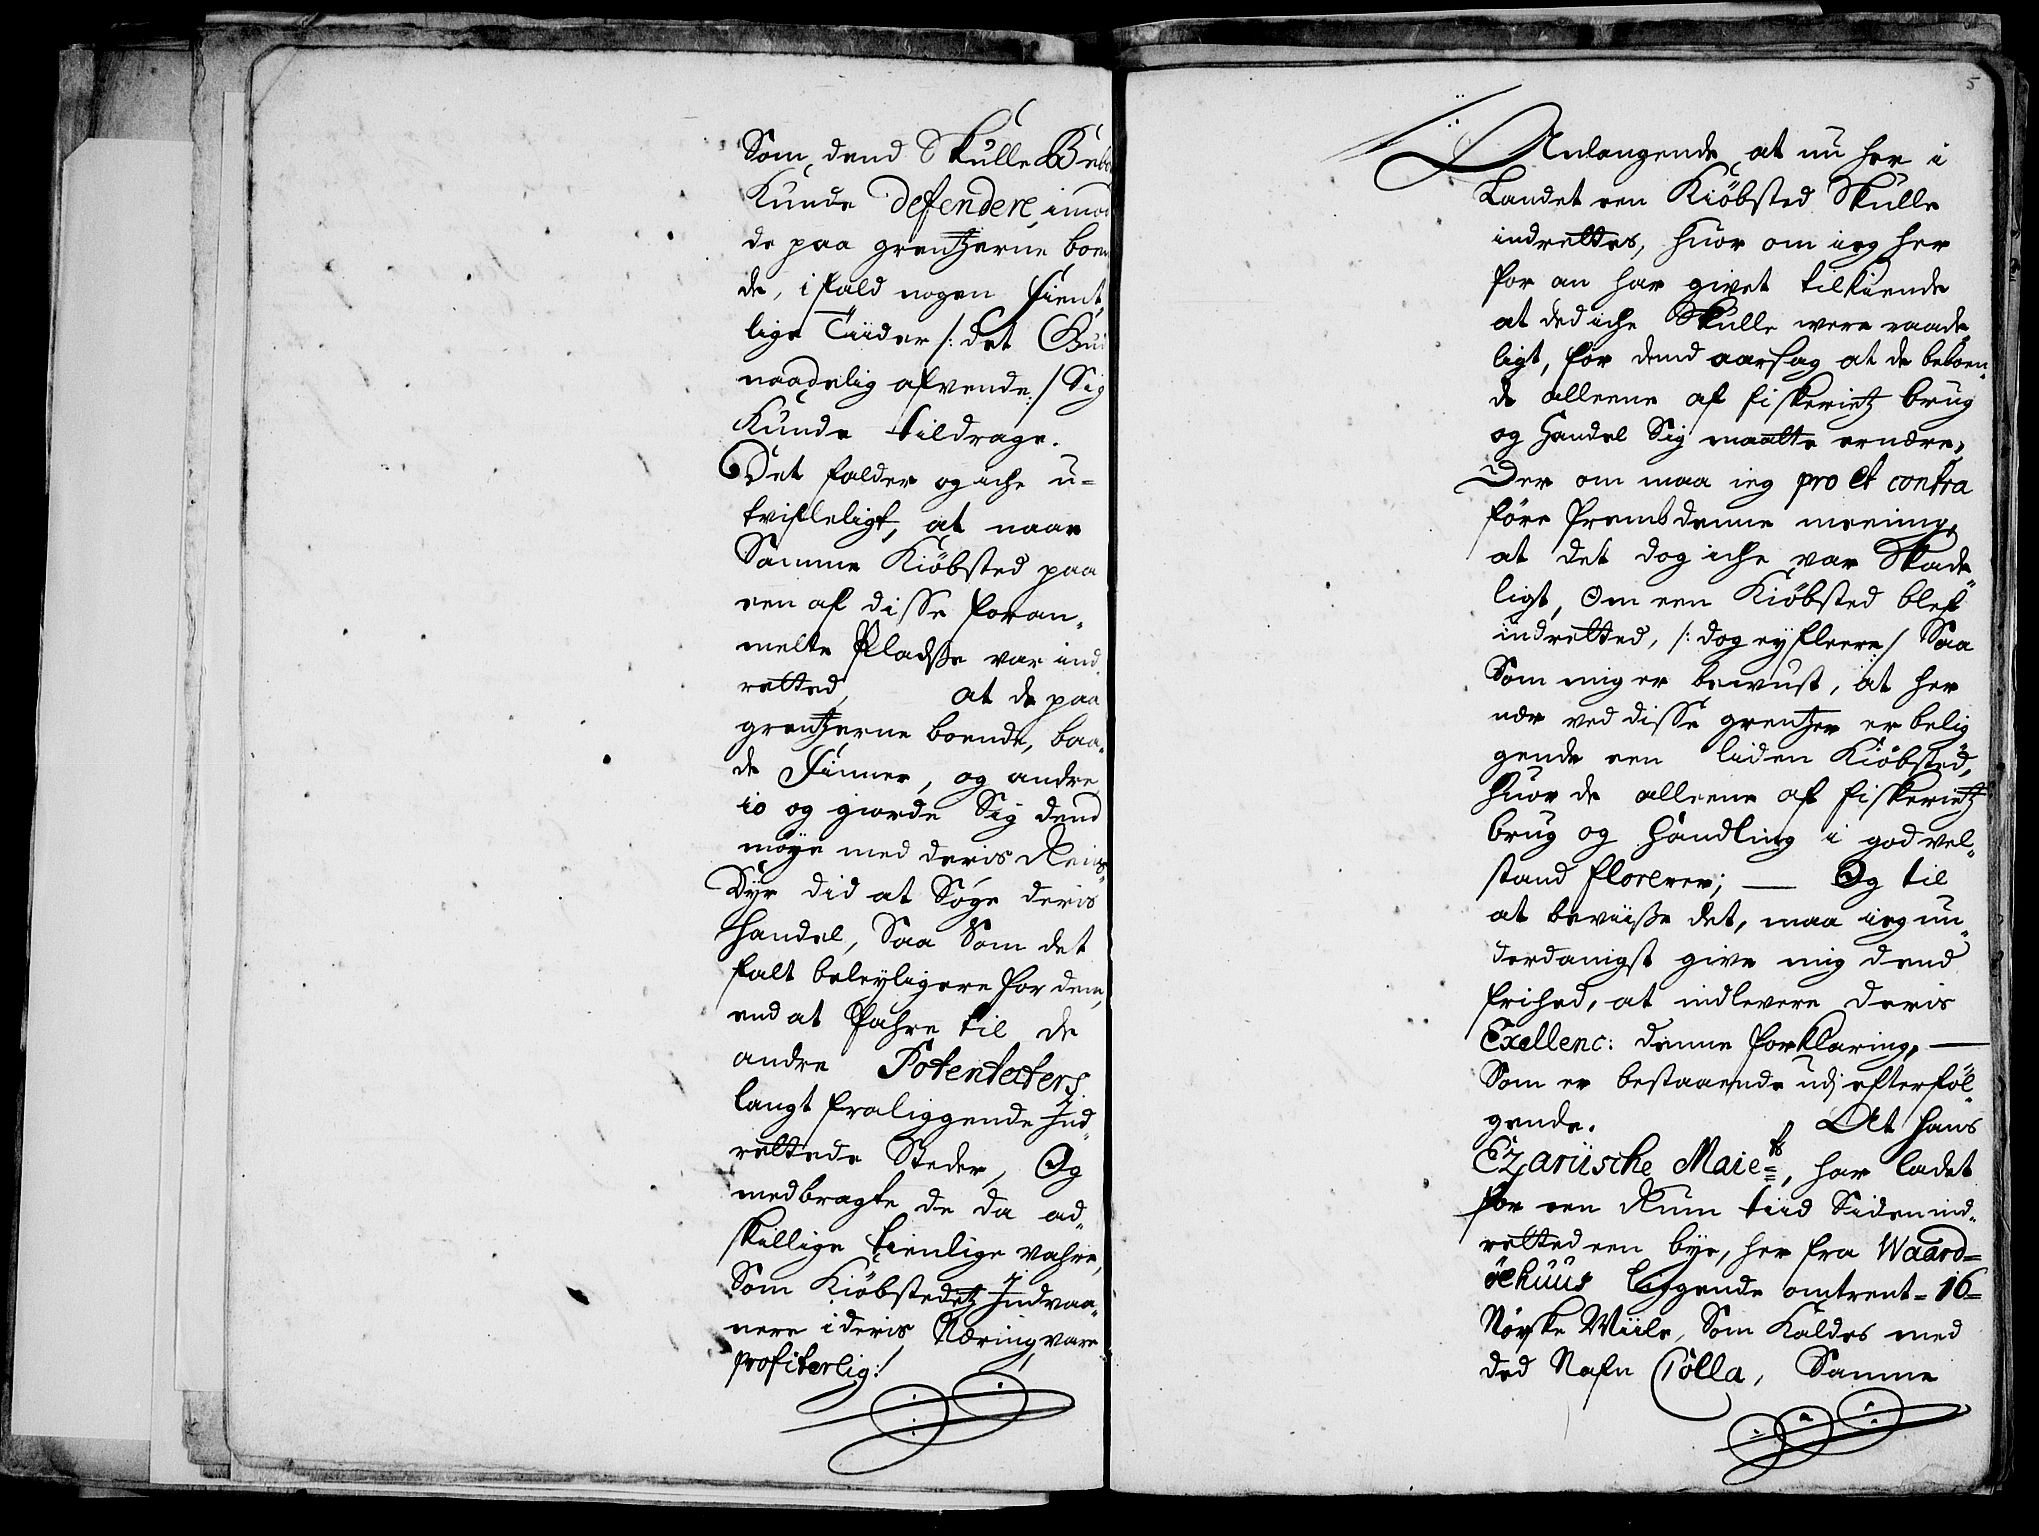 Som dend Skulle Bebo
Kunde defendere, imod
de paa grentzerne boen
de, i fald nogen fient,
lige Tiider /: det Gud
naadelig afvende :/ Sig
Kunde tildrage.
Det falder og iche u=
tvifleligt, at naar
Samme Kiöbsted paa
een af disse foran,
melte Pladsse var ind
retted, at de paa
grentzerne boende, baa,
de Finner, og andre
io og giorde Sig dend
möye med deris Reins,
Dyr did at Söge deris
Handel, Saa Som det
falt beleyligere for dem,
end at fahre til de
andre Potentaters
langt fraliggende Ind,
rettede Steder, Og
medbragte de da ad,
skillige tienlige vahre,
Som Kiöbstedetz Indvaa,
nere i deris Næring vare
profiterlig:/
5
Anlangende at nu her i
Landet een Kiöbsted Skulle
indrettes, huor om ieg her
for an har givet tilkiende
at ded iche Skulle were raade,
ligt, for dend aarsag at de beboen,
de alleene af fiskerietz brug
og Handel Sig maatte ernære,
Der om maa ieg pro et contra
före frembdenne meening,
at det dog iche var Skade
ligt, Om een Kiöbsted blef
indretted, /: dog ey fleere :/ Saa
Som mig er bewust, at her
nær ved disse grentzer er belig
gende een liden Kiöbsted,
huor de alleene af fiskerietz
brug og Handling i god vel,
stand florerer; — Og til
at beviisse det, maa ieg un,
derdanigst give mig dend
frihed, at indlevere Deris
Exellenc: denne forklaring, —
Som er bestaaende udj efterföl,
gende. At Hans
Czariische Maie=ts, har ladet
for een Rum tiid Siden ind,
retted een bye, her fra Waard=
öehuus liggende omtrent = 16 =
Norske Miile, Som Kaldes med
ded Nafn Colla, Samme